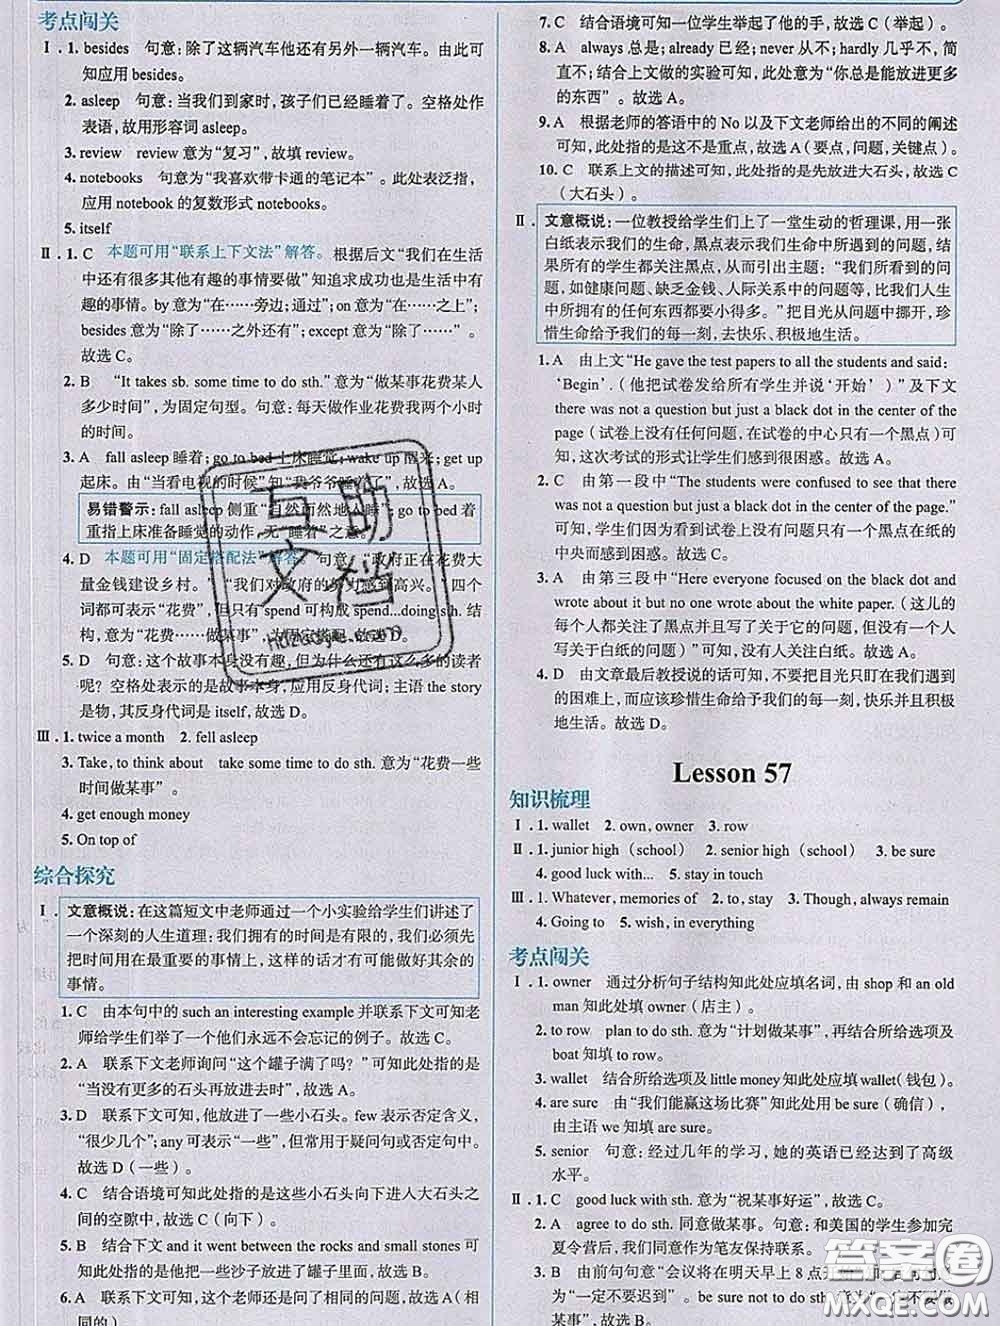 考点闯关
Ⅰ. 1. besides 句意:除了这辆汽车他还有另外一辆汽车。由此可
知应用 besides。
2. asleep 句意:当我们到家时,孩子们已经睡着了。空格处作
表语,故用形容词 asleep。
3. review review 意为“复习”,故填 review。
4. notebooks 句意为“我喜欢带卡通的笔记本”。此处表泛指,
应用 notebook 的复数形式 notebooks。
5. itself
Ⅱ. 1. C 本题可用“联系上下文法”解答。根据后文“我们在生活
中还有很多其他有趣的事情要做”知追求成功也是生活中有
趣的事情。by 意为“在……旁边;通过”;on 意为“在……之上”;
besides 意为“除了……之外还有”;except 意为“除了……”。
故选 C。
2. B “It takes sb. some time to do sth.”意为“做某事花费某人
多少时间”,为固定句型。句意:每天做作业花费我两个小时
的时间。
3. A fall asleep 睡着;go to bed 上床睡觉;wake up 醒来;get up
起床。由“当看电视的时候”知“我爷爷睡着了”,故选 A。
易错警示:fall asleep 侧重“自然而然地入睡”;go to bed 着
重指上床准备睡觉的动作,无“睡着”之意。
4. D 本题可用“固定搭配法”解答。句意:“政府正在花费大
量金钱建设乡村。”“我们对政府的努力感到高兴。”四个
词都可表示“花费”,但只有 spend 可构成 spend...doing sth. 结
构,意为“花费……做某事”,为固定搭配,故选 D。
5. D 句意:这个故事本身没有趣,但为什么还有这么多的读者
呢?空格处表示的是故事本身,应用反身代词;主语 the story
是物,其反身代词是 itself,故选 D。
Ⅲ. 1. twice a month 2. fell asleep
3. Take, to think about take some time to do sth. 意为“花费一些
时间做某事”。
4. get enough money
5. On top of
综合探究
Ⅰ. 文意概说:在这篇短文中老师通过一个小实验给学生们讲述了
一个深刻的人生道理:我们拥有的时间是有限的,我们必须先
把时间用在最重要的事情上,这样的话才有可能做好其余的
事情。
1. C 由本句中的 such an interesting example 并联系下文可知老
师给学生们举了一个他们永远不会忘记的例子。故选 C。
2. A 联系下文老师询问“这个罐子满了吗?”可知此处指的是
“当没有更多的石头再放进去时”,故选 A。
3. D 联系下文可知,他放进了一些小石头。few 表示否定含义,
“很少几个”;any 可表示“一些”,但常用于疑问句或否定句中。
故选 D(一些)。
4. C 结合语境可知此处指的是这些小石头向下进入大石头之
间的空隙中,故选 C(向下)。
5. B 结合下文 and it went between the rocks and small stones 可
知此处指的是他把一些沙子放进了罐子里面,故选 B。
6. A 联系下文可知,这个老师还是问了相同的问题,故选 A(相
同的)。
7. C 结合语境可知一位学生举起了他的手,故选 C(举起)。
8. A always 总是;already 已经;never 从不;hardly 几乎不,简
直不;结合上文做的实验可知,此处意为“你总是能放进更多
的东西”。故选 A。
9. A 根据老师的答语中的 No 以及下文老师给出的不同的阐述
可知,此处指的是这不是重点,故选 A(要点,问题,关键点)。
10. C 联系上文的描述可知,此处指的是先放进大石头,故选 C
(大石头)。
Ⅱ. 文意概说:一位教授给学生们上了一堂生动的哲理课,用一张
白纸表示我们的生命,黑点表示我们生命中所遇到的问题,
结果所有的学生都关注黑点,从而引出主题:“我们所看到的问
题,如健康问题、缺乏金钱、人际关系中的问题等,比我们人生
中所拥有的任何东西都要小得多。”把目光从问题中挪开,珍
惜生命给予我们的每一刻,去快乐、积极地生活。
1. A 由上文“He gave the test papers to all the students and said:
‘Begin’.(他把试卷发给所有学生并说‘开始’)”及下文
there was not a question but just a black dot in the center of the
page(试卷上没有任何问题,在试卷的中心只有一个黑点)可
知,这次考试的形式让学生们感到很困惑。故选 A。
2. C 由第一段中“The students were confused to see that there
was not a question but just a black dot in the center of the page.”
可知,学生们因为看到试卷上没有问题只有一个黑点在纸的
中央而感到困惑。故选 C。
3. A 由第三段中“Here everyone focused on the black dot and
wrote about it but no one wrote about the white paper.(这儿的
每个人都关注了黑点并且写了关于它的问题,但没有一个人
写关于白纸的问题)”可知,没有人关注白纸。故选 A。
4. D 由文章最后教授说的话可知,不要把目光只盯在我们遇到
的困难上,而应该珍惜生命给予我们的每一刻,快乐并且积极
地生活。故选 D。
Lesson 57
知识梳理
Ⅰ. 1. wallet 2. own, owner 3. row
Ⅱ. 1. junior high (school) 2. senior high (school) 3. be sure
4. good luck with... 5. stay in touch
Ⅲ. 1. Whatever, memories of 2. to, stay 3. Though, always remain
4. Going to 5. wish, in everything
考点闯关
Ⅰ. 1. owner 通过分析句子结构知此处应填名词,由 shop 和 an old
man 知此处填 owner(店主)。
2. to row plan to do sth. 意为“计划做某事”,再结合所给选项及
boat 知填 to row。
3. wallet 结合所给选项及 little money 知此处应填 wallet(钱包)。
4. are sure 由“我们能赢这场比赛”知此处用 be sure(确信),
由主语 we 知填 are sure。
5. senior 句意:经过几年的学习,她的英语已经达到了高级
水平。
Ⅱ. 1. C good luck with sth. 意为“祝某事好运”,故选 C。
2. A agree to do sth. 同意做某事。句意:和美国的学生参加完
夏令营后,我们同意作为笔友保持联系。故选
3. B 由前句句意“会议将在明天早上 8 点
为“一定不要迟到”。be sure not to do sth. 意为“一定不要做
某事”,故选 B。
互助
文档
答案圈
MXQE.COM